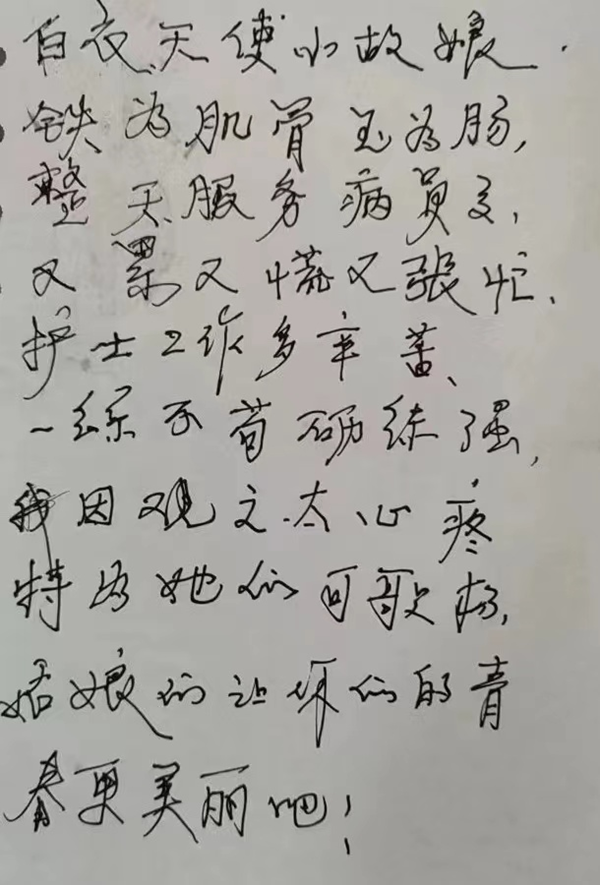 白衣天使小故娘.
铁为肌骨玉为肠,
整天服务病员多,
又累又慌又张忙、
护士工作多辛苦、
一丝不苟砺练强,
我因观之太心疼
特为她们可歌扬,
姑娘们让你们的青
春更美丽吧!